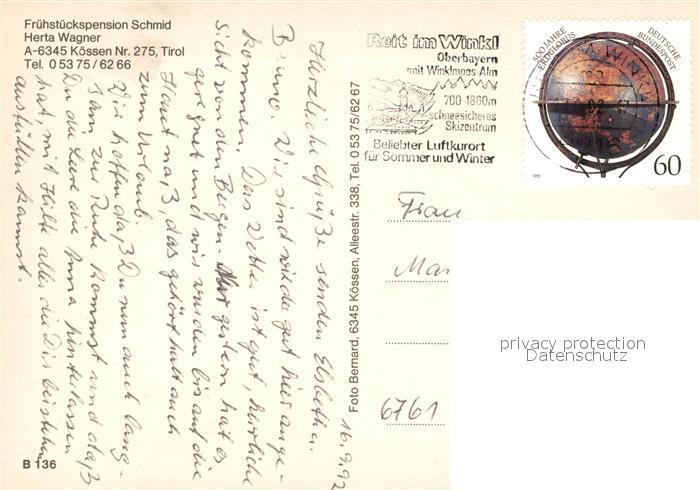 Frühstückspension Schmid
Herta Wagner
A-6345 Kössen Nr. 275, Tirol
Tel. 0 53 75 / 62 66
Herzliche Grüße senden Elsbeth u.
Bruno. Wir sind wieder gut hier ange-
kommen. Das Wetter ist gut, herrliche
Sicht von den Bergen. Nur gestern hat es
geregnet und wir wurden bis auf die
Haut naß, das gehört halt auch
zum Urlaub.
Wir hoffen daß Du nun auch lang-
sam zur Ruhe kommst und daß
Du die Leere die Anna hinterlassen
hat, mit Hilfe aller die Dir beistehen
ausfüllen kannst.
16.9.92
B 136
Foto Bernard, 6345 Kössen, Alleestr. 338, Tel. 0 53 75/62 67
Reit im Winkl
Oberbayern
mit Winklmoos-Alm
700-1860m
schneesicheres
Skizentrum
Beliebter Luftkurort
für Sommer und Winter
500 JAHRE
ERDGLOBUS
DEUTSCHE
BUNDESPOST
60
1992
Frau
6761
privacy protection
Datenschutz